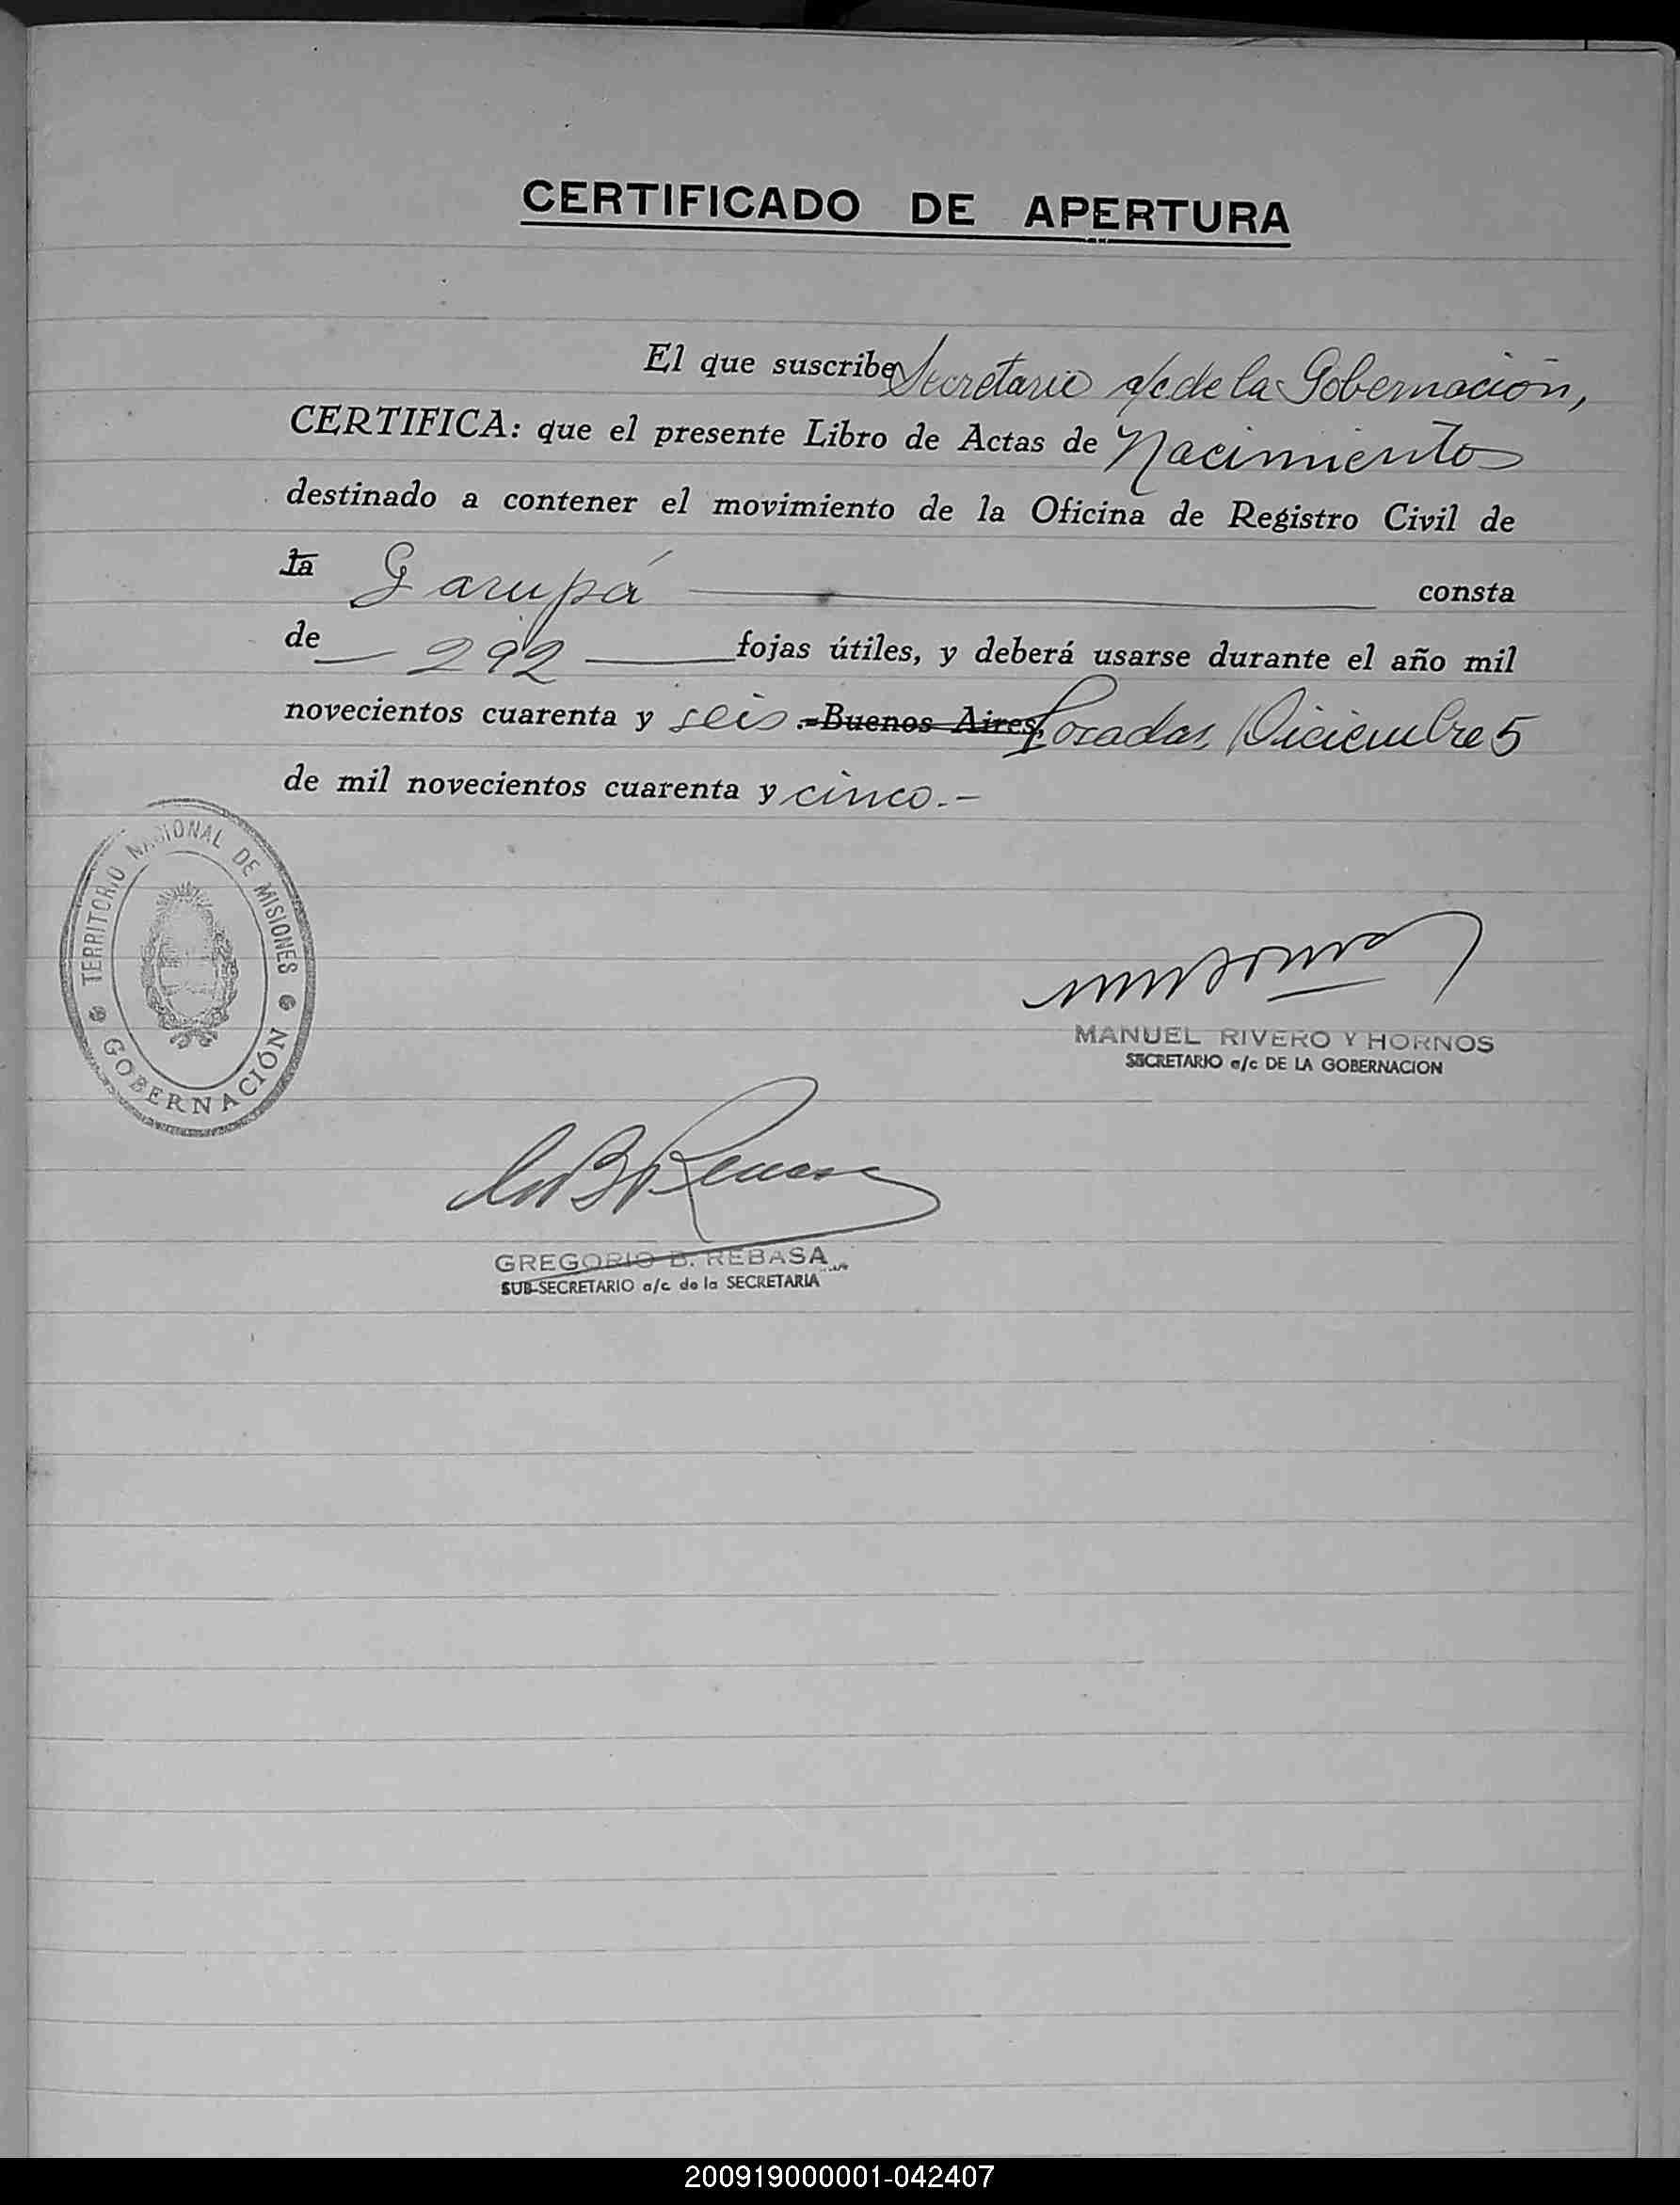 CERTIFICADO DE APERTURA
El que suscribe Secretario a/c de la Gobernación,
CERTIFICA: que el presente Libro de Actas de Nacimiento
destinado a contener el movimiento de la Oficina de Registro Civil de
la Garupá consta
de 292 fojas útiles, y deberá usarse durante el año mil
novecientos cuarenta y seis .-Buenos Aires, Posadas, Diciembre 5
de mil novecientos cuarenta y cinco.-
TERRITORIO NACIONAL DE MISIONES
GOBERNACIÓN
MANUEL RIVERO Y HORNOS
SECRETARIO a/c DE LA GOBERNACION
GREGORIO B. REBASA
SUB-SECRETARIO a/c de la SECRETARIA
200919000001-042407